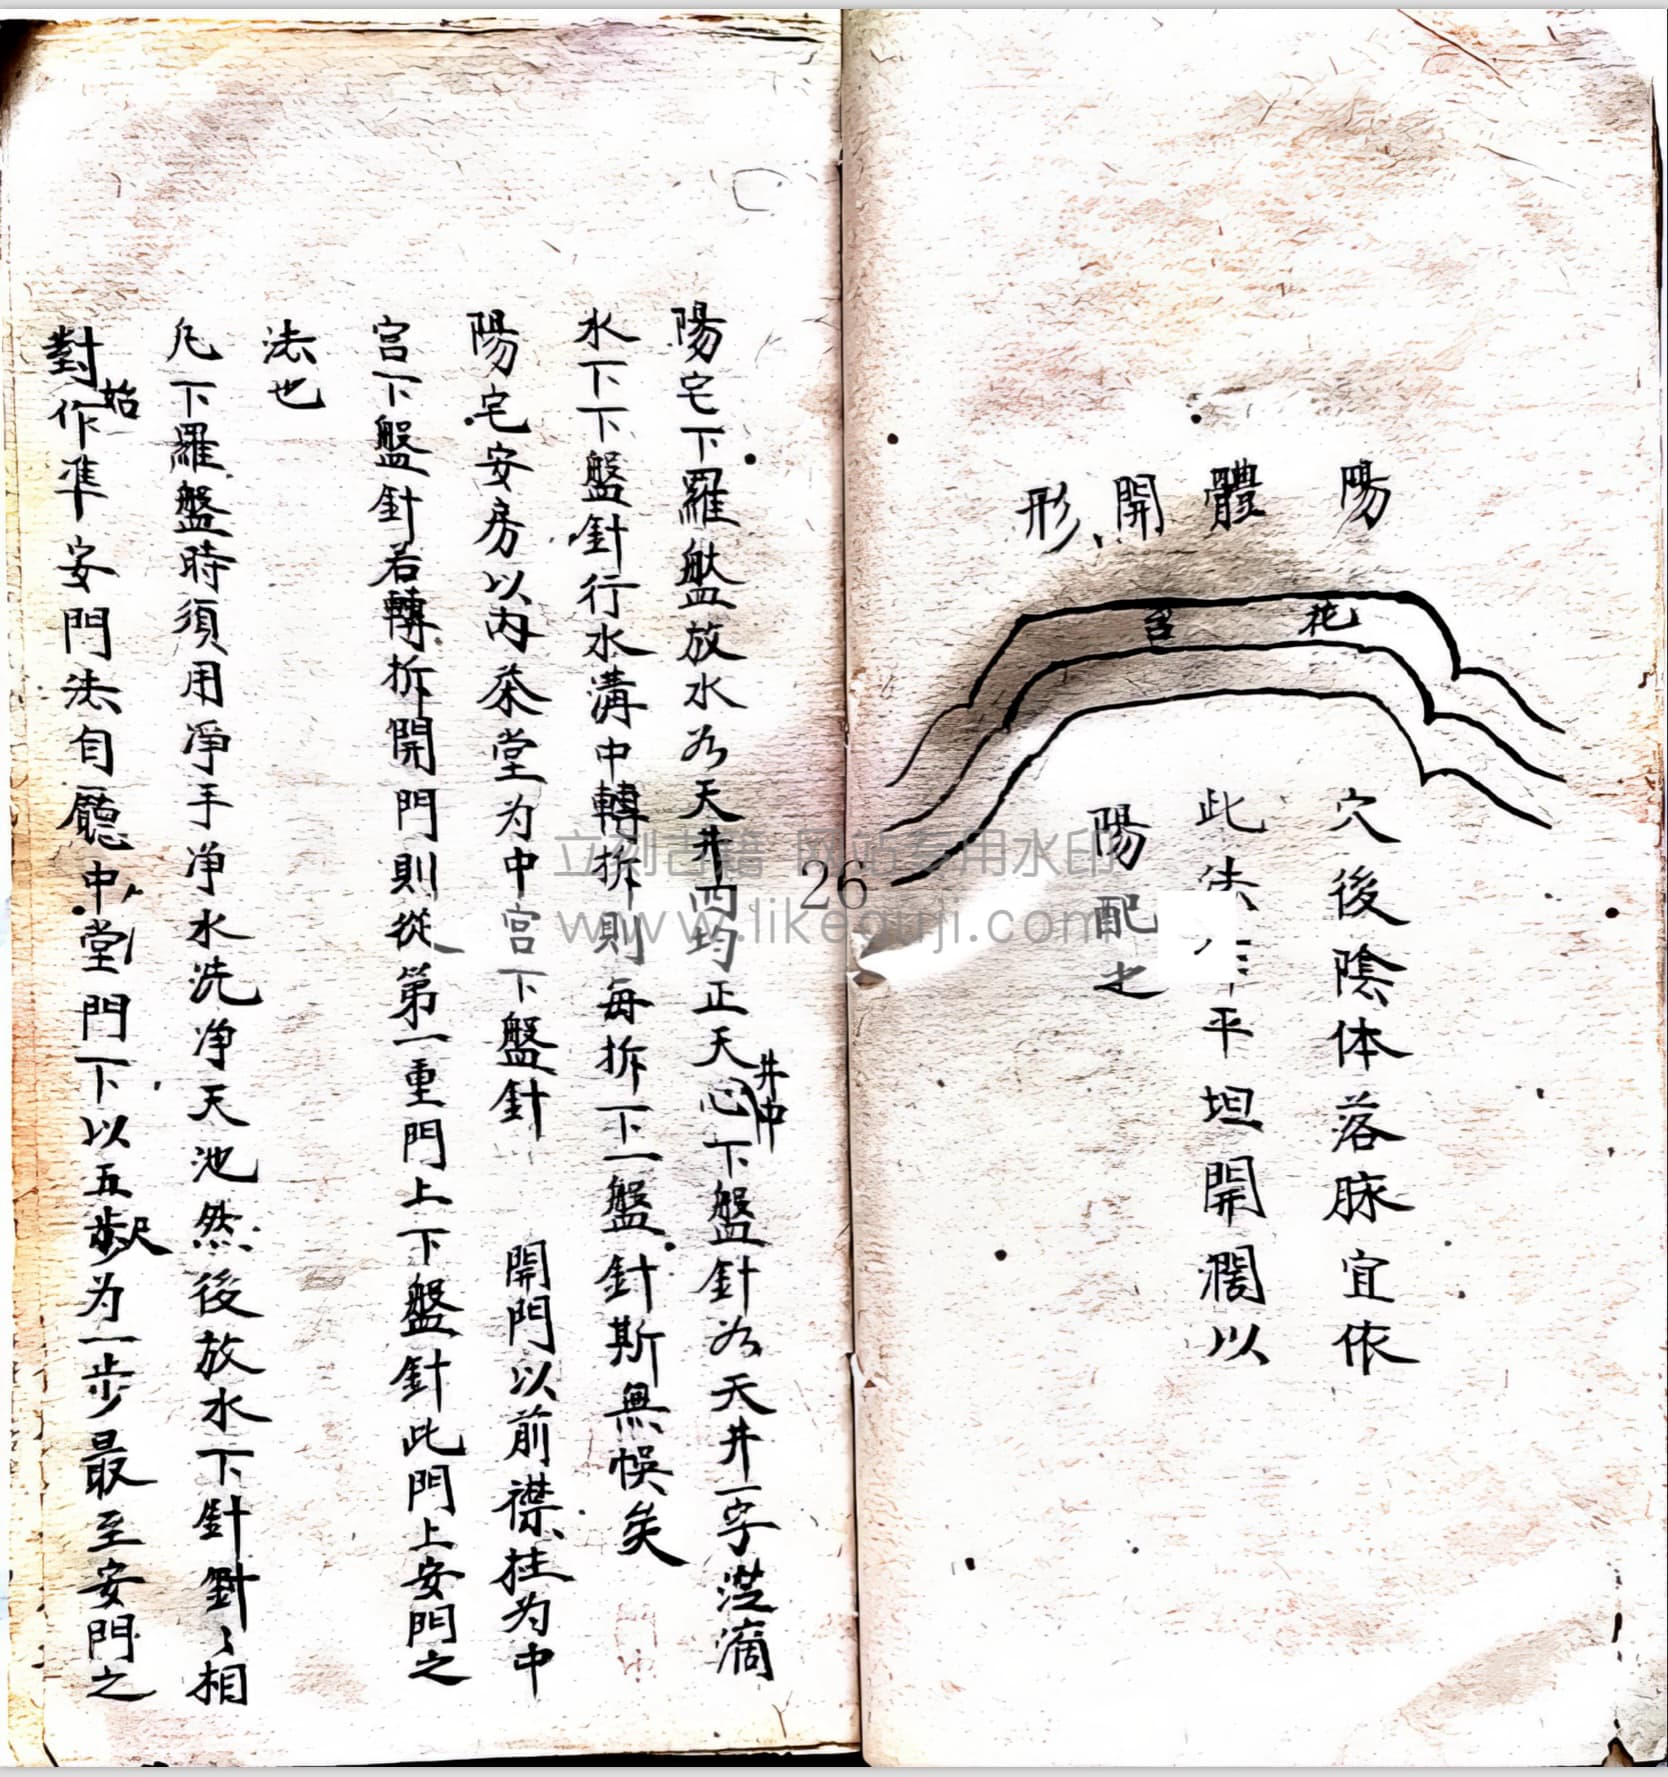 陽體開形
花
台
穴後陰体落脉宜依
此法
平坦開濶以
陽配之
陽宅下羅盤放水
天井
均正天心下盤針
天井一字
滴
井中
水下下盤針行水溝中轉拆則每拆下一盤針斯無悞矣
陽宅安房以内
堂为中宫下盤針
開門以前襟柱为中
宫下盤針若轉拆開門則從第一重門上下盤針此門上安門之
法也
凡下羅盤時須用净手净水洗净天池然後放水下針針〻相
對始作準安門法自廳中堂門下以五
尺为一步最至安門之
立刻古籍 网站专用水印
26
www.likeguji.com